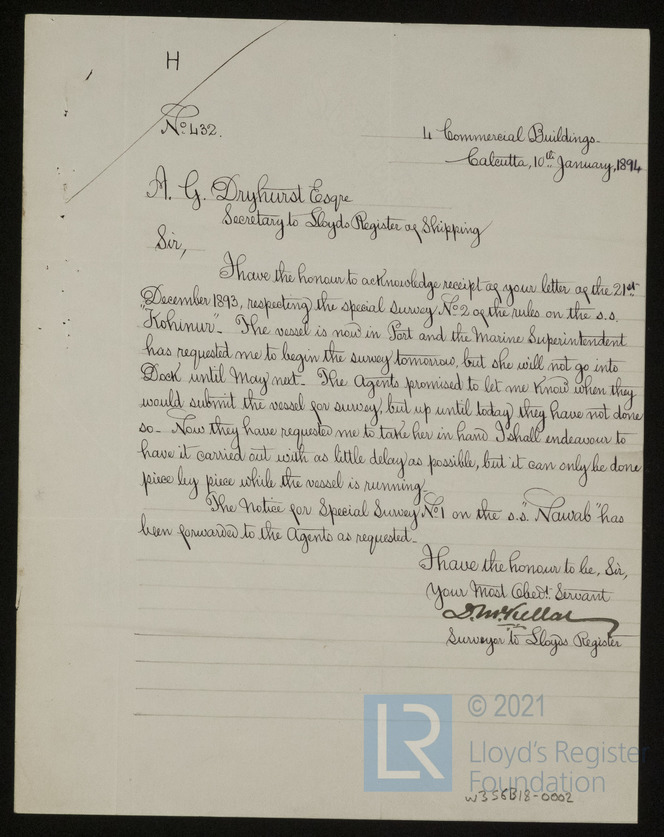 H
No. 432.
4 Commercial Buildings.
Calcutta, 10th January, 1894
A. G. Dryhurst Esqre
Secretary to Lloyds Register of Shipping
Sir,
I have the honour to acknowledge receipt of your letter of the 21st
December 1893, respecting the special survey No 2 of the rules on the s.s.
"Kohinur". The vessel is now in Port and the Marine Superintendent
has requested me to begin the survey tomorrow, but she will not go into
Dock until May next. The Agents promised to let me know when they
would submit the vessel for survey, but up until today they have not done
so. Now they have requested me to take her in hand I shall endeavour to
have it carried out with as little delay as possible, but it can only be done
piece by piece while the vessel is running.
The Notice for Special Survey No 1 on the s.s. "Nawab" has
been forwarded to the Agents as requested.
I have the honour to be, Sir,
Your Most Obedt. Servant
D. McKellar
Surveyor to Lloyds Register
LR
© 2021
Lloyd's Register
Foundation
W356B18-0002